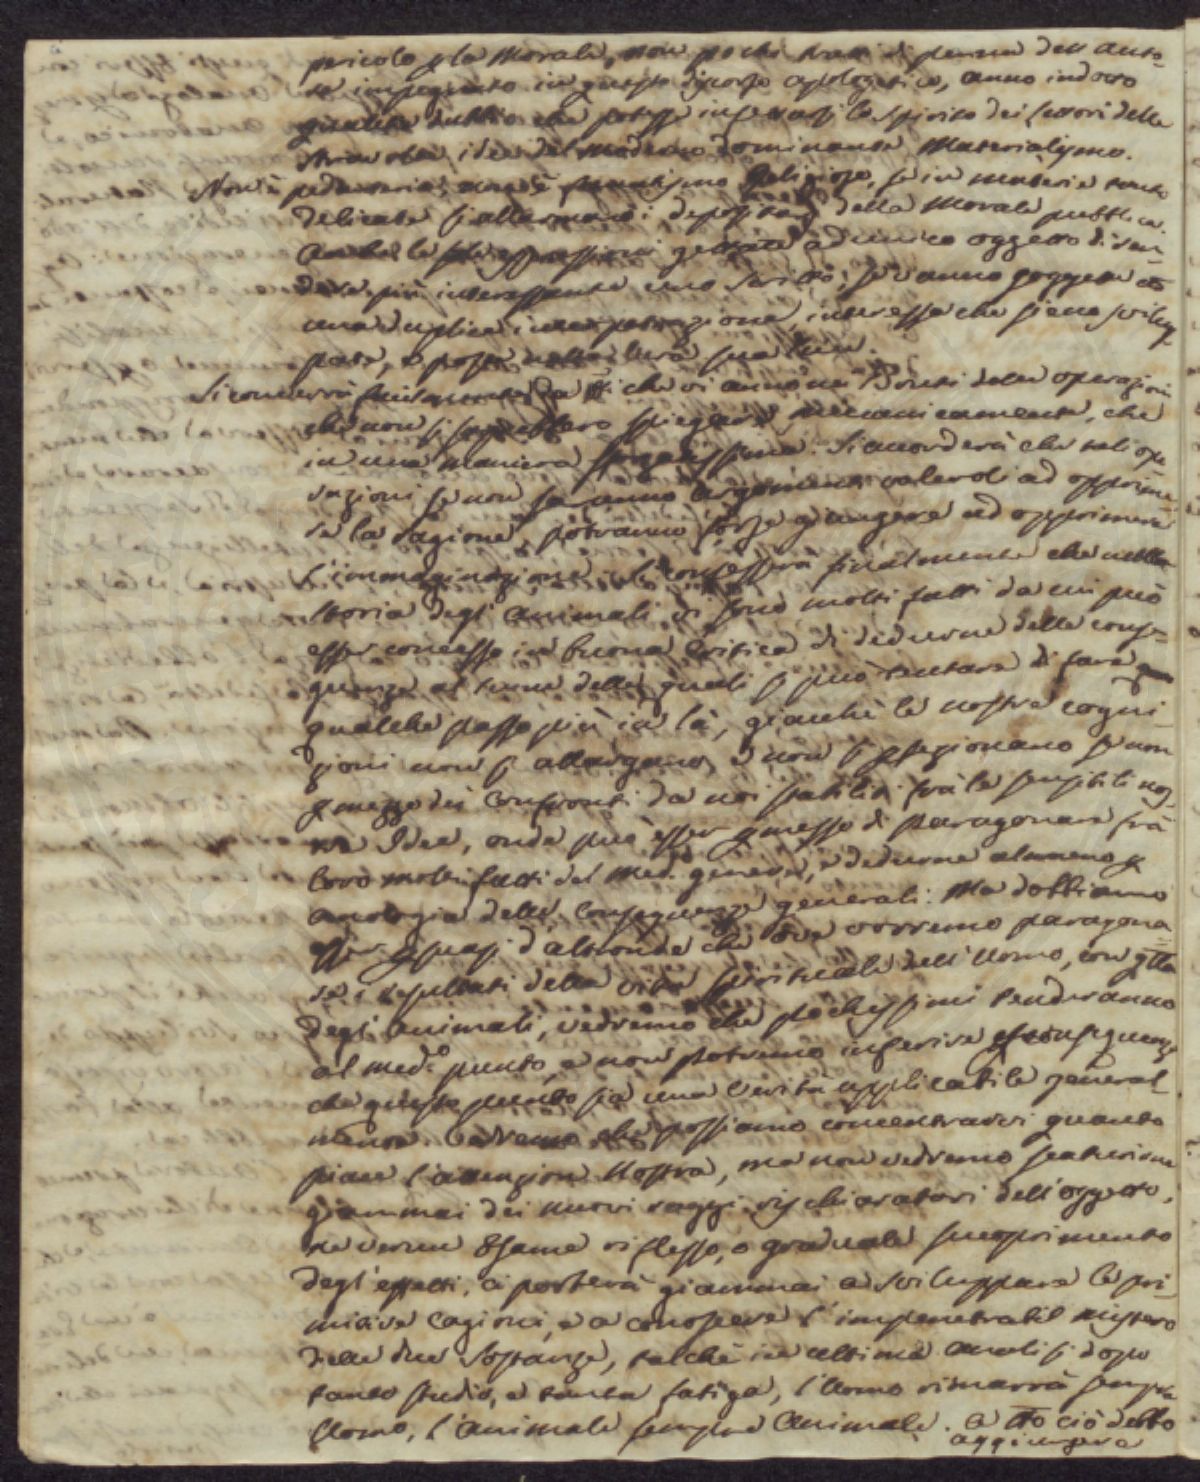 pericolo p la Morale, non pochi tratti di penna dell'auto-
re impegnato in questo discorso apologetico, anno indotto
qualche dubbio che potesse infer lo spirito dei Lettori delle
stravolte idee del moderno dominante Materialismo.
Non è pedanteria, non è fanatismo Religioso, se in materie tanto
delicate s'allarmano i depositarj della Morale pubblica.
Anche le espressioni gettate ad unico oggetto di ren-
dere più interessante uno scritto, se vanno soggette ad
una duplice interpetrazione, interessa che sieno svilup-
pate, e poste nella vera sua luce.
Si converrà da tti che vi anno ne' Bruti delle operazioni
che non si saprebbero spiegare meccanicamente, che
in una maniera forzatissima. Si accorderà che tali ope-
razioni se non saranno argomenti valevoli ad opprime-
re la ragione, potranno forse giungere ad opprimere
l'immaginazione. Si confesserà finalmente che nella
storia degl'animali, vi sono molti fatti da cui può
esser concesso in buona Critica di dedurne delle conse-
guenze al lume delle quali si può tentare di fare
qualche passo più in là, giacchè le nostre cogni-
zioni non si allargano, e non si pfezionano se non
p mezzo dei Confronti da noi stabiliti frà le sensibili nos-
tre Idee, onde può esser pmesso di paragonare frà
loro molti fatti del med. genere, e dedurne almeno p
analogia delle Conseguenze generali. Ma dobbiamo
esser psuasi d'altronde che ove vorremo paragona-
re i resultati della vita spirituale dell'Uomo, con qlla
degl'animali, vedremo che pochissimi tenderanno
al med.o punto, e non potremo inferire p conseguenza
che questo punto sia una verità applicabile general-
mente. possiamo concentrarci quanto
piace l'attenzione Nostra, ma non vedremo scaturirne
giammai dei nuovi raggi rischiaratori dell'oggetto,
ne verun Esame riflesso, o graduale scuoprimento
degl'effetti, ci porterà giammai a sviluppare le pri-
mitive Cagioni, e a conoscere l'impenetrabil mistero
delle due Sostanze, talchè in ultima analisi dopo
tanto studio, e tanta fatiga, l'Uomo rimarrà sempre
Uomo, l'animale sempre Animale. A tto ciò debbo
aggiungere